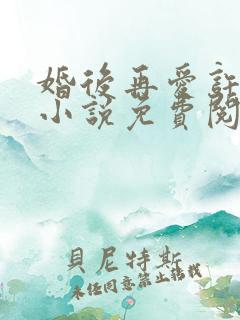 婚後再愛許
小說免費閱
貝尼特斯
未經同意禁止轉載